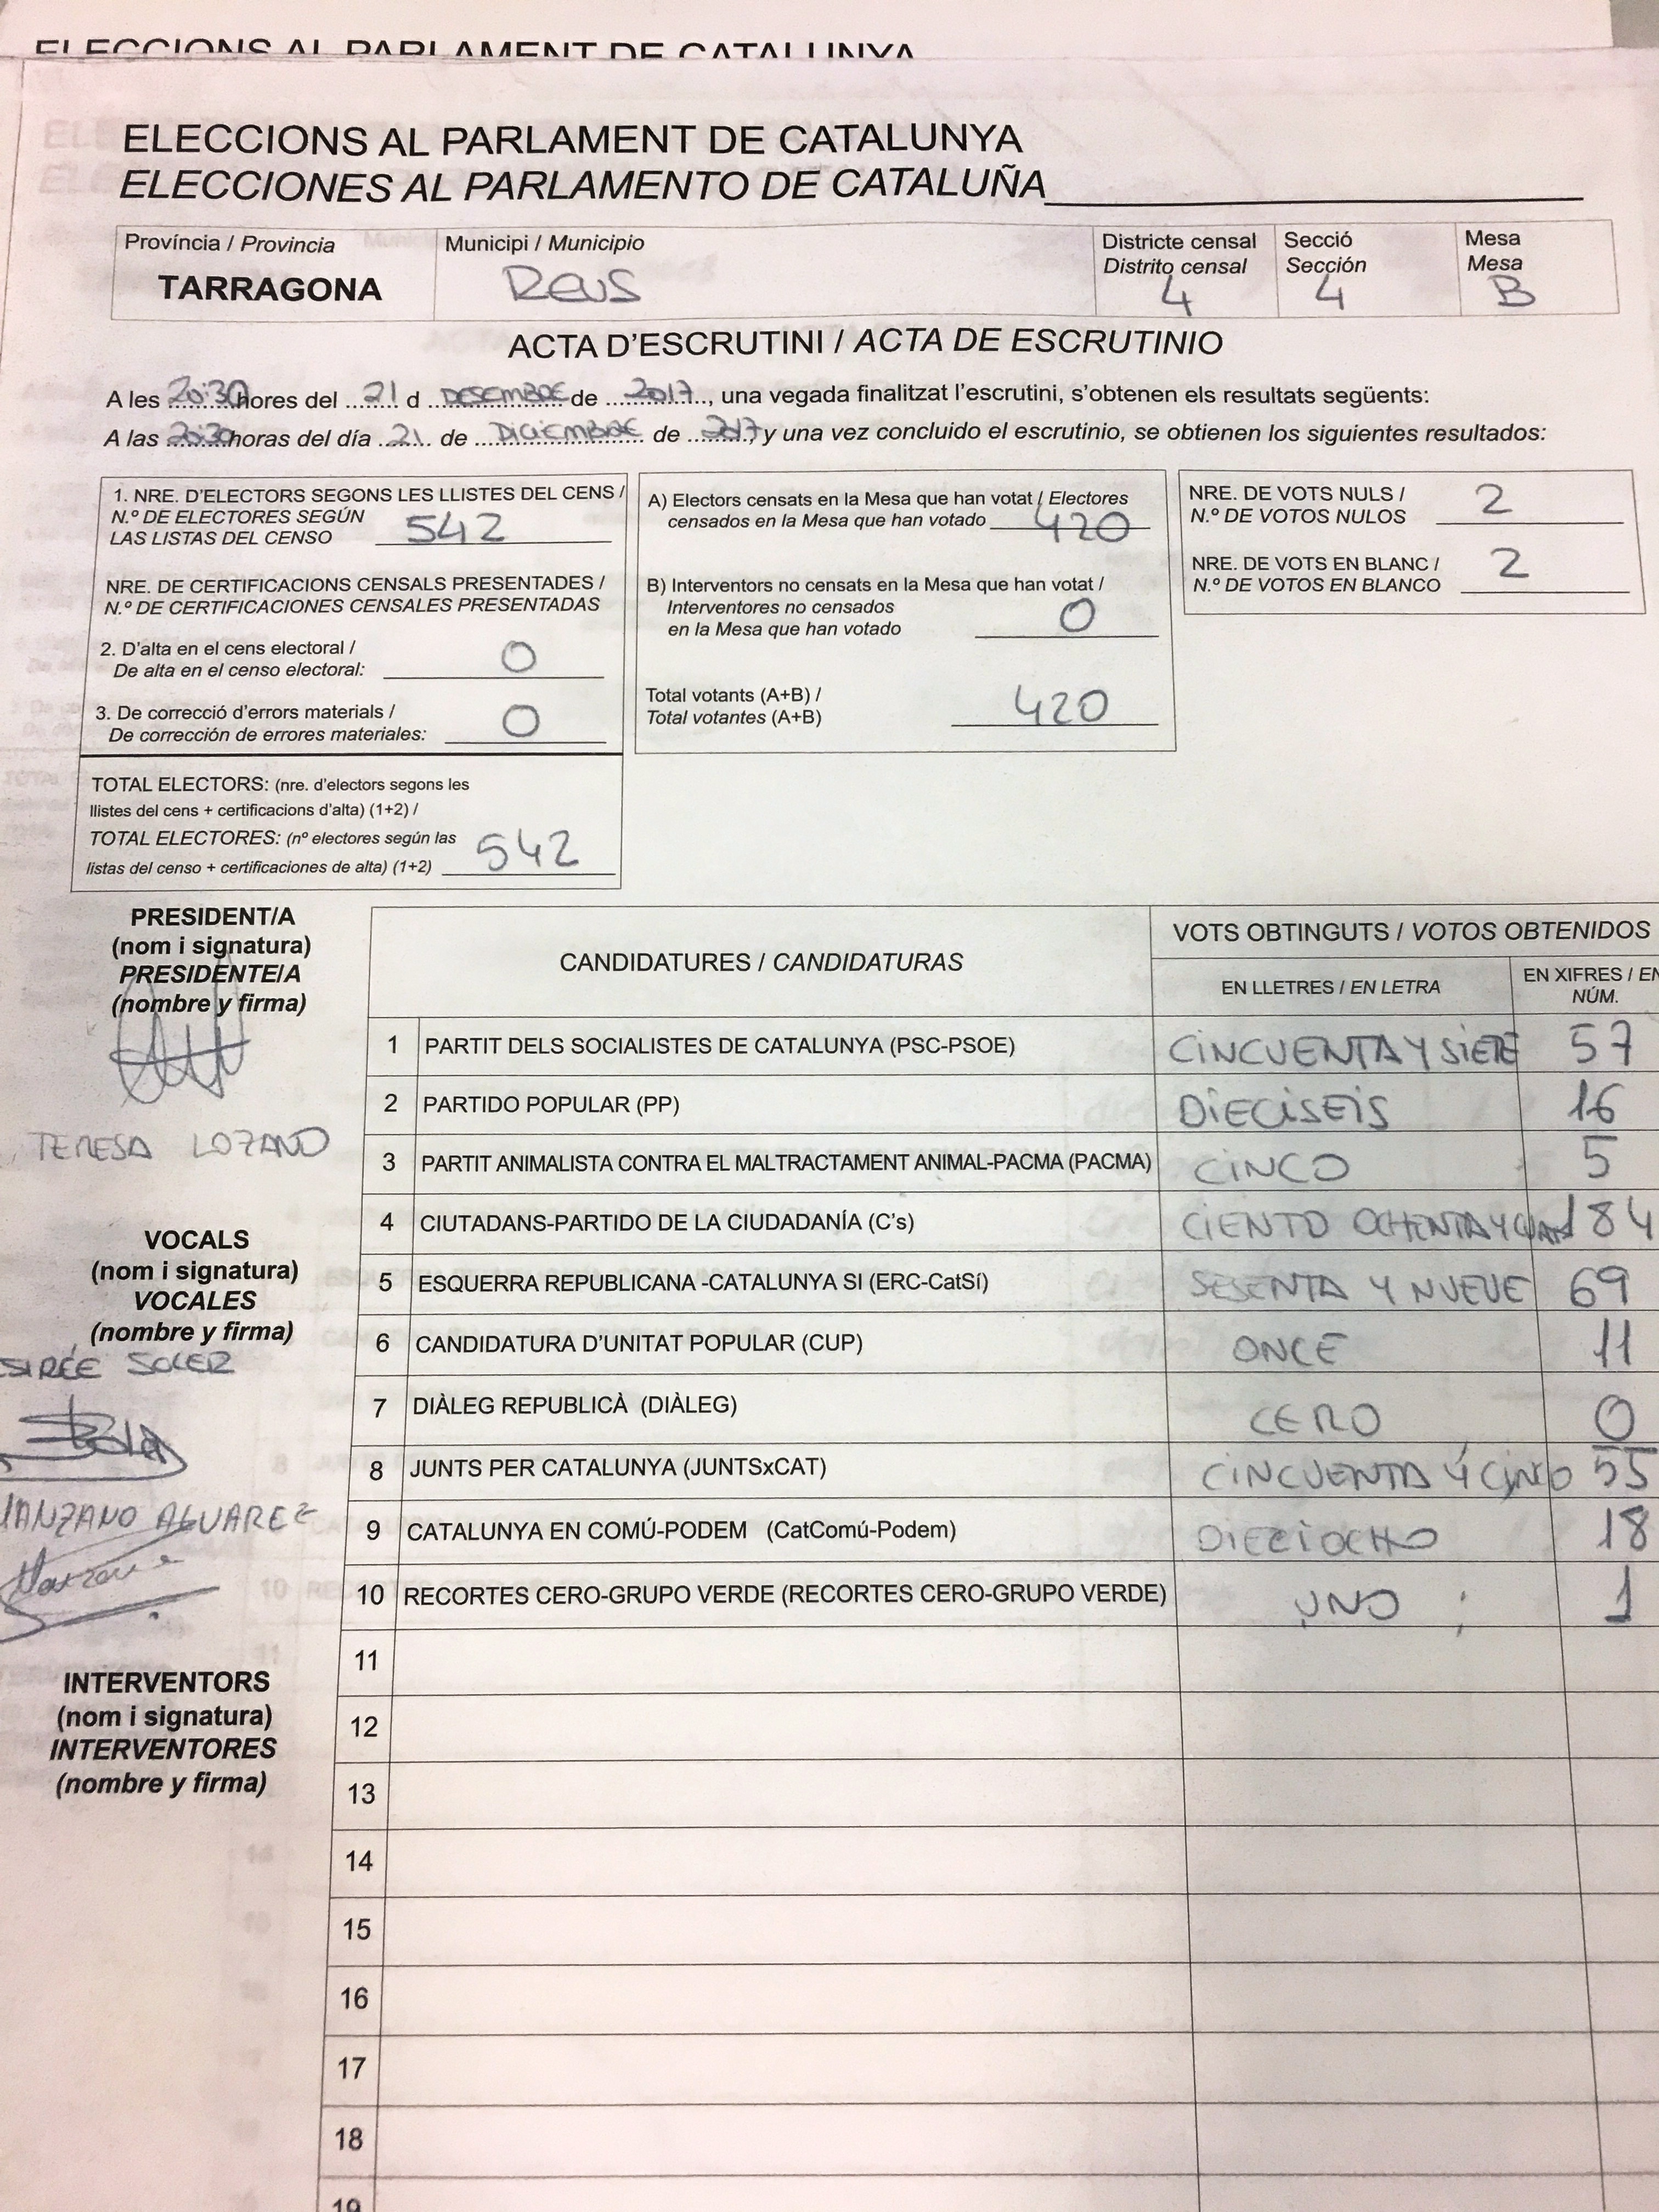 ELECCIONS AL PARLAMENT DE CATALUNYA
ELECCIONS AL PARLAMENT DE CATALUNYA
ELECCIONES AL PARLAMENTO DE CATALUÑA
Província / Provincia
TARRAGONA
Municipi / Municipio
Reus
Districte censal
Distrito censal
4
Secció
Sección
4
Mesa
Mesa
B
ACTA D'ESCRUTINI / ACTA DE ESCRUTINIO
A les 20:30 hores del 21 d DESEMBRE de 2017, una vegada finalitzat l'escrutini, s'obtenen els resultats següents:
A las 20:30 horas del día 21 de DICIEMBRE de 2017, y una vez concluido el escrutinio, se obtienen los siguientes resultados:
1. NRE. D'ELECTORS SEGONS LES LLISTES DEL CENS /
N.º DE ELECTORES SEGÚN
LAS LISTAS DEL CENSO 542
NRE. DE CERTIFICACIONS CENSALS PRESENTADES /
N.º DE CERTIFICACIONES CENSALES PRESENTADAS
2. D'alta en el cens electoral /
De alta en el censo electoral: 0
3. De correcció d'errors materials /
De corrección de errores materiales: 0
TOTAL ELECTORS: (nre. d'electors segons les
llistes del cens + certificacions d'alta) (1+2) /
TOTAL ELECTORES: (nº electores según las
listas del censo + certificaciones de alta) (1+2) 542
A) Electors censats en la Mesa que han votat / Electores
censados en la Mesa que han votado 420
B) Interventors no censats en la Mesa que han votat /
Interventores no censados
en la Mesa que han votado 0
Total votants (A+B) /
Total votantes (A+B) 420
NRE. DE VOTS NULS /
N.º DE VOTOS NULOS 2
NRE. DE VOTS EN BLANC /
N.º DE VOTOS EN BLANCO 2
PRESIDENT/A
(nom i signatura)
PRESIDENTE/A
(nombre y firma)
TERESA LOZANO
VOCALS
(nom i signatura)
VOCALES
(nombre y firma)
SIRÉE SOLER
MANZANO ALVAREZ
INTERVENTORS
(nom i signatura)
INTERVENTORES
(nombre y firma)
CANDIDATURES / CANDIDATURAS
VOTS OBTINGUTS / VOTOS OBTENIDOS
EN LLETRES / EN LETRA
EN XIFRES / EN
NÚM.
1 PARTIT DELS SOCIALISTES DE CATALUNYA (PSC-PSOE) CINCUENTA Y SIETE 57
2 PARTIDO POPULAR (PP) DIECISEIS 16
3 PARTIT ANIMALISTA CONTRA EL MALTRACTAMENT ANIMAL-PACMA (PACMA) CINCO 5
4 CIUTADANS-PARTIDO DE LA CIUDADANÍA (C's) CIENTO OCHENTA Y CUATRO 184
5 ESQUERRA REPUBLICANA -CATALUNYA SI (ERC-CatSí) SESENTA Y NUEVE 69
6 CANDIDATURA D'UNITAT POPULAR (CUP) ONCE 11
7 DIÀLEG REPUBLICÀ (DIÀLEG) CERO 0
8 JUNTS PER CATALUNYA (JUNTSxCAT) CINCUENTA Y CINCO 55
9 CATALUNYA EN COMÚ-PODEM (CatComú-Podem) DIECIOCHO 18
10 RECORTES CERO-GRUPO VERDE (RECORTES CERO-GRUPO VERDE) UNO 1
11
12
13
14
15
16
17
18
19